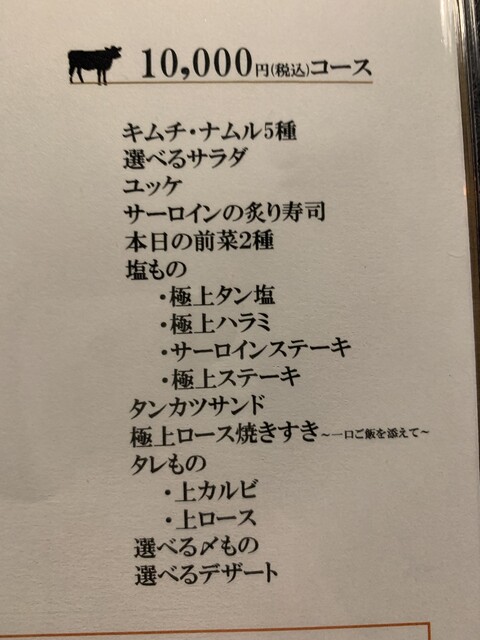 10,000円(税込)コース
キムチ・ナムル5種
選べるサラダ
ユッケ
サーロインの炙り寿司
本日の前菜2種
塩もの
・極上タン塩
・極上ハラミ
・サーロインステーキ
・極上ステーキ
タンカツサンド
極上ロース焼きすき～一口ご飯を添えて～
タレもの
・上カルビ
・上ロース
選べる〆もの
選べるデザート